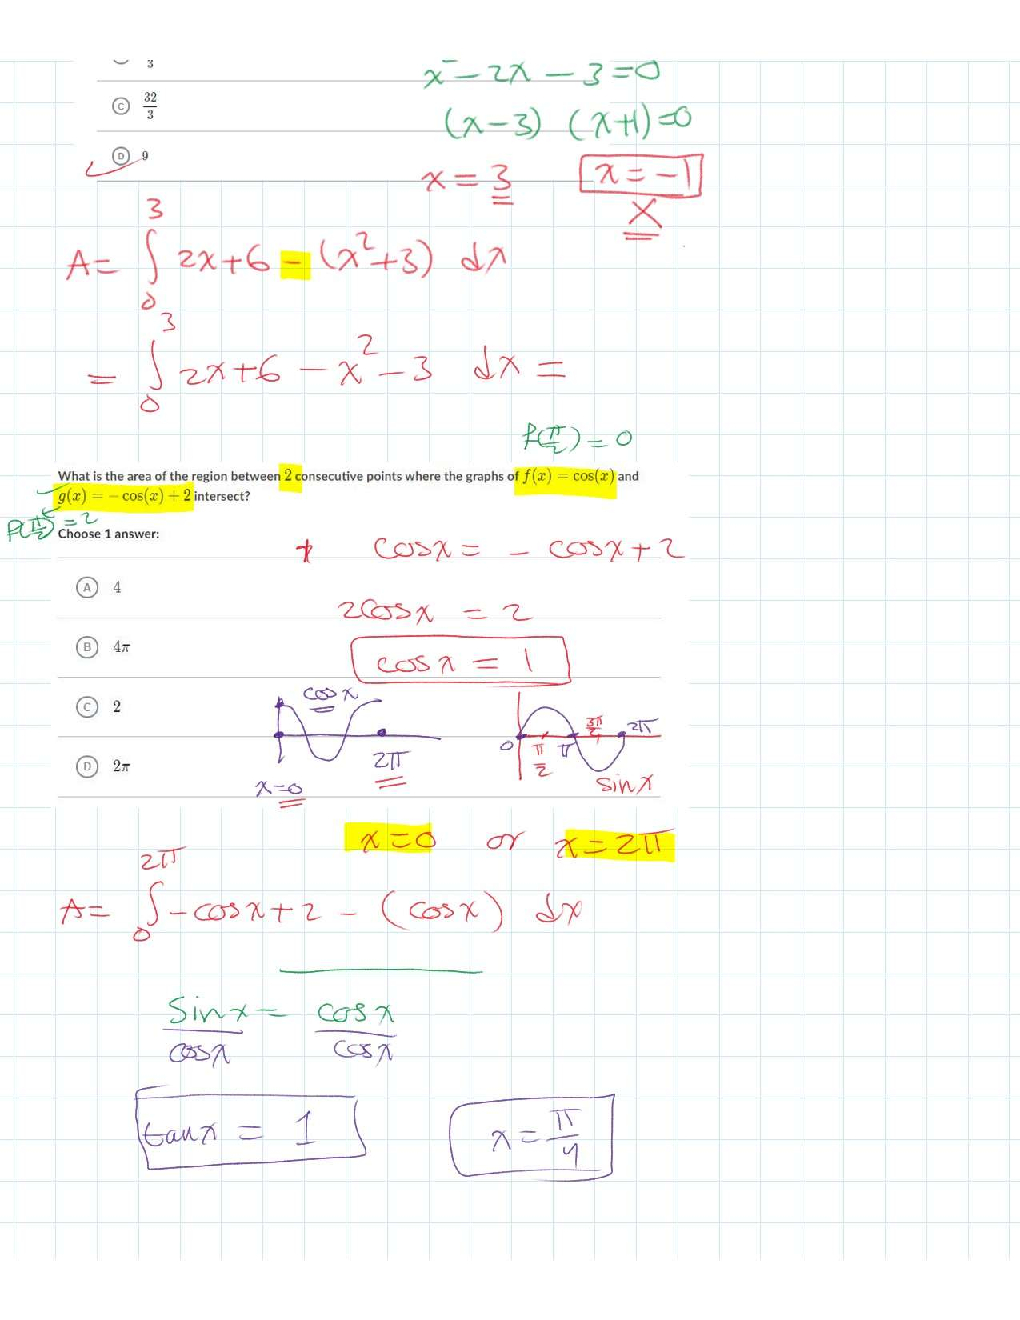 3
x² - 2x - 3 = 0
C 32/3
(x-3) (x+1)=0
D 9
x = 3 x = -1
X
A = ∫₀³ 2x+6 - (x²+3) dx
= ∫₀³ 2x+6 - x² - 3 dx =
f(π/2) = 0
What is the area of the region between 2 consecutive points where the graphs of f(x) = cos(x) and
g(x) = − cos(x) + 2 intersect?
f(π/2) = 2
Choose 1 answer:
cosx = - cosx + 2
A 4
2cosx = 2
B 4π
cosx = 1
C 2
cosx
0 π/2 π 3π/2 2π
2π
D 2π
x=0
sinx
x=0 or x=2π
A = ∫₀^2π -cosx+2 - (cosx) dx
sinx/cosx = cosx/cosx
tanx = 1
x = π/4